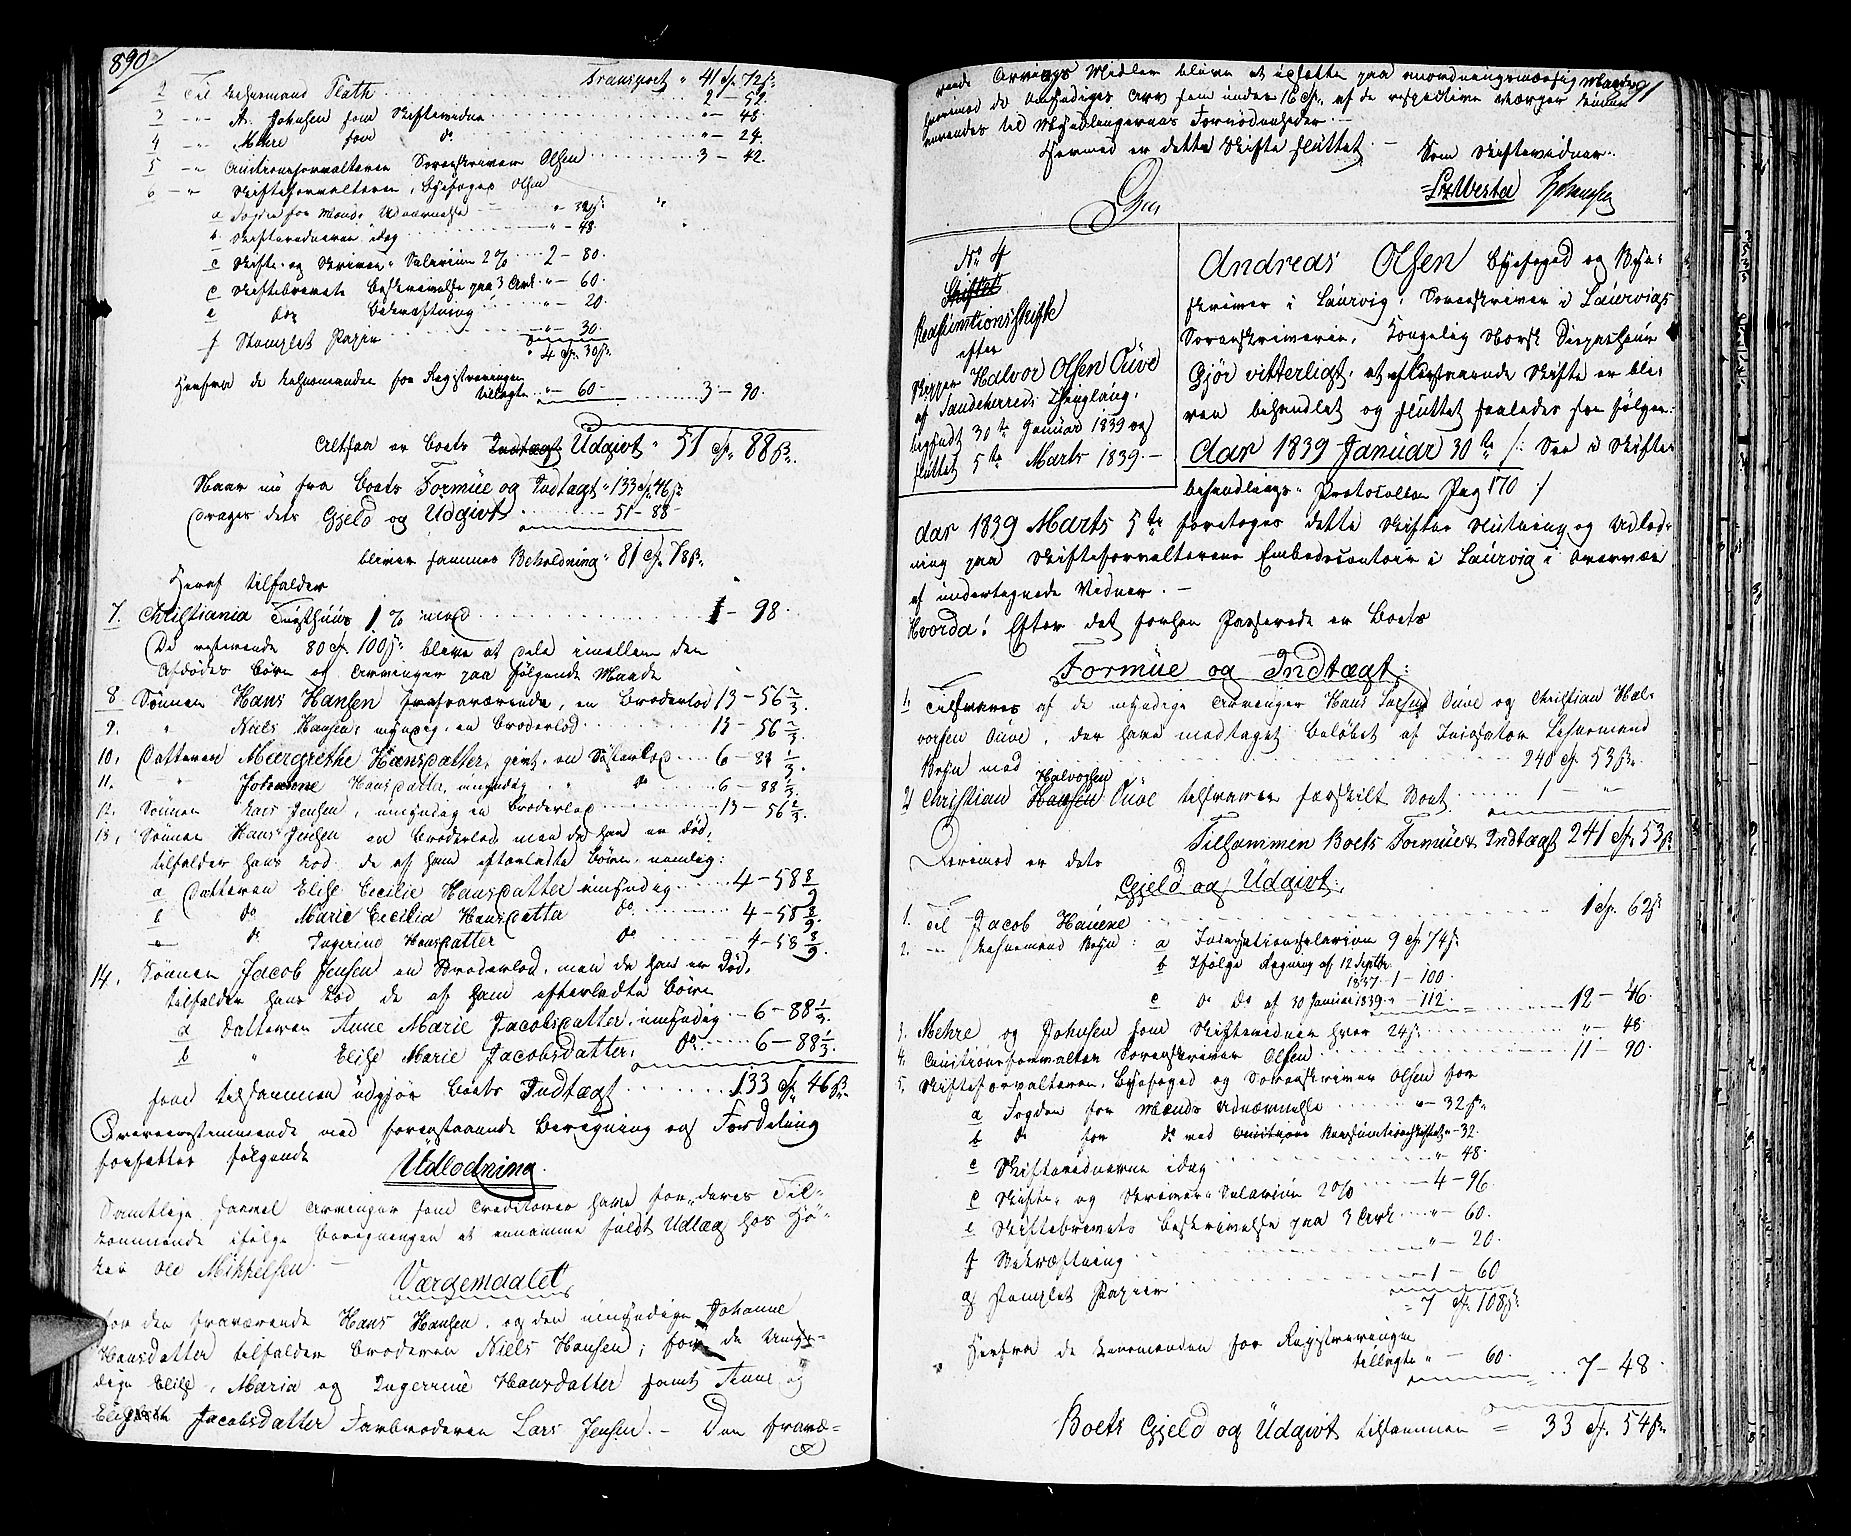 890
Transport " 41 Sp. 72 ß
2 Til Lehnsmand Flath 2 - 52
3 - " A. Johnsen som Skiftevidne " - 48.
4 - " Mehre som do " - 24.
5 - " Auctionsforvalteren Sorenskriver Olsen 3 - 42.
6 - " Skifteforvalteren, Byefoged Olsen
a Fogden for Mænds Udnævnelse " - 32 ß
b. Skiftevidnerne idag " - 48.
c Skifte- og Skriver-Salarium 2 % 2 - 80.
d Skiftebrevets Beskrivelse paa 3 Ark " - 60.
e dets Bekræftning " - 20.
f Stemplet Papir " - 30.
" 4 Sp. 30 ß.
Herfra de Lehnsmanden for Registreringen
tillagte " - 60 3 - 90.
Altsaa er Boets Indtægt Udgivt " 51 Sp. 88 ß.
Naar nu fra Boets Formue og Indtægt " 133 Sp. 46 ß
drages dets Gjeld og Udgivt 51 - 88
bliver sammes Beholdning " 81 Sp. 78 ß.
Heraf tilfalder
7. Christiania Tugthuus 1 % med 1 - 98.
De resterende 80 Sp. 100 ß. bleve at dele imellem den
Afdødes Børn og Arvinger paa følgende Maade
8 Sønnen Hans Hansen fraværende, en Broderlod 13 - 56 2/3.
9. " Niels Hansen, myndig, en Broderlod 13 - 56 2/3.
10. Datteren Margrethe Hansdatter, givt, en Søsterlod 6 - 88 1/3.
11. " Johanne Hansdatter, umyndig do 6 - 88 1/3.
12. Sønnen Lars Jensen, umyndig en Broderlod 13 - 56 2/3.
13. Sønnen Hans Jensen en Broderlod, men da han er død,
tilfalder hans Lod de af ham efterladte Børn, nemlig:
a Datteren Elise Cecilie Hansdatter umyndig 4 - 58 8/9
b do Marie Cecilia Hansdatter do 4 - 58 8/9
c do Ingerine Hansdatter do 4 - 58 8/9.
14. Sønnen Jacob Jensen en Broderlod, men da han er død,
tilfalder hans Lod de af ham efterladte Børn
a Datteren Anne Marie Jacobsdatter, umyndig 6 - 88 1/3.
b " Elise Marie Jacobsdatter, do 6 - 88 1/3.
som tilsammen udgjør Boets Indtægt 133 Sp. 46 ß.
Overeensstemmende med foranstaaende Beregning og Fordeling
forfattes følgende
Udlodning.
Samtlige saavel Arvinger som Creditorer have for deres Til-
kommende ifølge Beregningen at annamme fuldt Udlæg hos
Ole Mikkelsen.
Værgemaalet
for den fraværende Hans Hansen, og den umyndige Johanne
Hansdatter tilfalder Broderen Niels Hansen; for de umyn-
dige Elise, Maria og Ingerine Hansdatter samt Anne og
Jacobsdatter Farbroderen Lars Jensen. - Den fravæ-
891
rende Arvings Midler blive at indsætte paa anordningsmæssig Maade,
hvorimod de Umyndiges Arv som under 16 Sp. af de respective Værger kunne
anvendes til Myndlingernes Fornødenheder. -
Hermed er dette Skifte sluttet. -
Som Skiftevidner.
Olsen
Johnsen
No 4
Skiftet
Reassumtionsskifte
efter
Skipper Halvor Olsen Ouve
af Sandeherreds Thinglaug,
begyndt 30te Januar 1839 og
sluttet 5te Marts 1839. -
Andreas Olsen Byefoged og Bye-
skriver i Laurvig, Sorenskriver i Laurvigs
Sorenskriverie, Kongelig Norsk
Gjør vitterligt, at efterstaaende Skifte er ble-
ven behandlet og sluttet saaledes som følger:
Aar 1839 Januar 30te /: See i Skifte-
behandlings-Protocollen Pag 170 /
Aar 1839 Marts 5te foretoges dette Skiftes Slutning og Udlod-
ning paa Skifteforvalterens Embedscontoir i Laurvig i Overvær
af undertegnede Vidner. -
Hvorda! Efter det forhen Passerede er Boets
Formue og Indtægt:
1 Tilsvares af de myndige Arvinger Hans Ouve og Christian Hal-
vorsen Ouve, der have modtaget Beløbet af Incassator Lehnsmand
Bryn med 240 Sp. 53 ß.
2 Christian Hansen Halvorsen Ouve tilsvarer særskilt Boet 1 - "
Tilsammen Boets Formue & Indtægt 241 Sp. 53 ß
Derimod er dets
Gjeld og Udgivt:
1. Til Jacob Hauene 1 Sp. 62 ß
2. - " Lehnsmand Bryn: a Incassationssalarium 9 Sp. 74 ß.
b Ifølge Regning af 12 Septbr.
1837. 1 - 100.
c do do af 30 Januar 1839 " - 112. 12 - 46.
3. Mehre og Johnsen som Skiftevidner hver 24 ß " - 48.
4. Auctionsforvalter Sorenskriver Olsen 11 - 90
5. Skifteforvalteren, Byefoged og Sorenskriver Olsen for
a Fogden for Mænds Udnævnelse " - 32 ß.
b do for do ved Auctions Reassumtionsskiftet " - 32.
c Skiftevidnerne idag " - 48.
d Skifte- og Skriver-Salarium 2 % 4 - 96.
e Skiftebrevets Beskrivelse paa 3 Ark " - 60.
f Bekræftning " - 20.
g Stemplet Papir 1 - 60
= 7 Sp. 108 ß.
Herfra de Lehnsmanden for Registreringen
tillagte " - 60. 7 - 48.
Boets Gjeld og Udgivt tilsammen = 33 Sp. 54 ß.